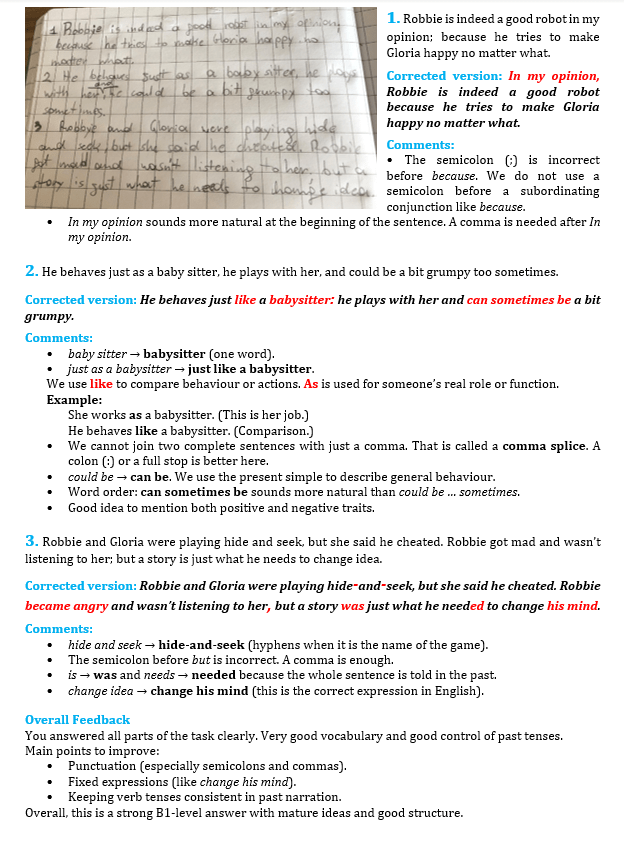 1 Robbie is indeed a good robot in my opinion,
because he tries to make Gloria happy no
matter what.
2 He behaves just as a baby sitter, he plays
with her, and could be a bit grumpy too
sometimes.
3 Robbye and Gloria were playing hide
and seek, but she said he cheated. Robbie
got mad and wasn't listening to her, but a
story is just what he needs to change idea.
1. Robbie is indeed a good robot in my
opinion; because he tries to make
Gloria happy no matter what.
Corrected version: In my opinion,
Robbie is indeed a good robot
because he tries to make Gloria
happy no matter what.
Comments:
• The semicolon (;) is incorrect
before because. We do not use a
semicolon before a subordinating
conjunction like because.
• In my opinion sounds more natural at the beginning of the sentence. A comma is needed after In
my opinion.
2. He behaves just as a baby sitter, he plays with her, and could be a bit grumpy too sometimes.
Corrected version: He behaves just like a babysitter: he plays with her and can sometimes be a bit
grumpy.
Comments:
• baby sitter → babysitter (one word).
• just as a babysitter → just like a babysitter.
We use like to compare behaviour or actions. As is used for someone's real role or function.
Example:
She works as a babysitter. (This is her job.)
He behaves like a babysitter. (Comparison.)
• We cannot join two complete sentences with just a comma. That is called a comma splice. A
colon (:) or a full stop is better here.
• could be → can be. We use the present simple to describe general behaviour.
• Word order: can sometimes be sounds more natural than could be ... sometimes.
• Good idea to mention both positive and negative traits.
3. Robbie and Gloria were playing hide and seek, but she said he cheated. Robbie got mad and wasn't
listening to her; but a story is just what he needs to change idea.
Corrected version: Robbie and Gloria were playing hide-and-seek, but she said he cheated. Robbie
became angry and wasn't listening to her, but a story was just what he needed to change his mind.
Comments:
• hide and seek → hide-and-seek (hyphens when it is the name of the game).
• The semicolon before but is incorrect. A comma is enough.
• is → was and needs → needed because the whole sentence is told in the past.
• change idea → change his mind (this is the correct expression in English).
Overall Feedback
You answered all parts of the task clearly. Very good vocabulary and good control of past tenses.
Main points to improve:
• Punctuation (especially semicolons and commas).
• Fixed expressions (like change his mind).
• Keeping verb tenses consistent in past narration.
Overall, this is a strong B1-level answer with mature ideas and good structure.